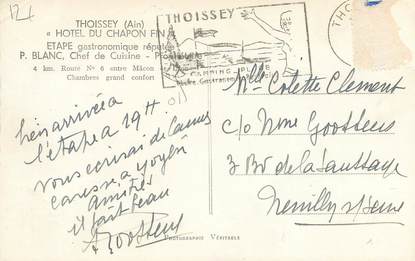 12f
THOISSEY (Ain)
« HOTEL DU CHAPON FIN »
ETAPE gastronomique réputée
P. BLANC, Chef de Cuisine - Propriétaire
4 km. Route N° 6 entre Mâcon et
Chambres grand confort
THOISSEY
CAMPING - PLAGE
THO
bien arrivée à
l'étape à 19H
vous écrirai de Cannes
caresse à
amitiés
il fait beau
Goossens
Mlle Colette Clement
c/o Mme Goossens
3 Bd de la Saussaye
Neuilly s/Seine
PHOTOGRAPHIE VÉRITABLE